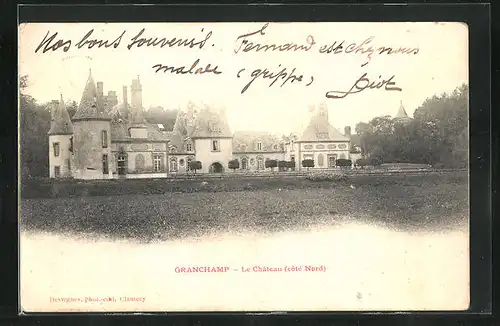 Nos bons souvenirs.
Fernand est chez nous
malade (grippe)
GRANCHAMP — Le Château (côté Nord)
phot.-édit, Clamecy